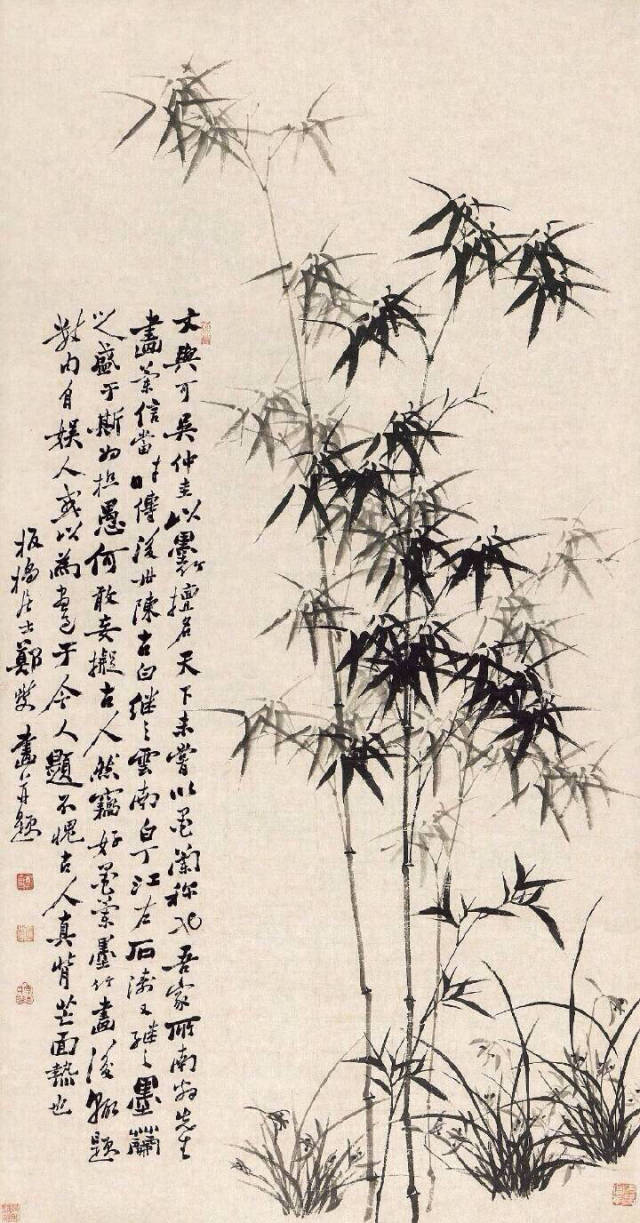 文與可吳仲圭以墨竹擅名天下未嘗以墨蘭稱也吾家所南翁先生
畫蘭信當時傳後世陳古白繼之雲南白丁江左石濤又繼之墨蘭
之盛于斯為極愚何敢妄擬古人然竊好墨蘭墨竹畫後輒題
數內自娛人或以為畫也于今人題不愧古人真背芒面熱也
板橋居士鄭燮畫并題